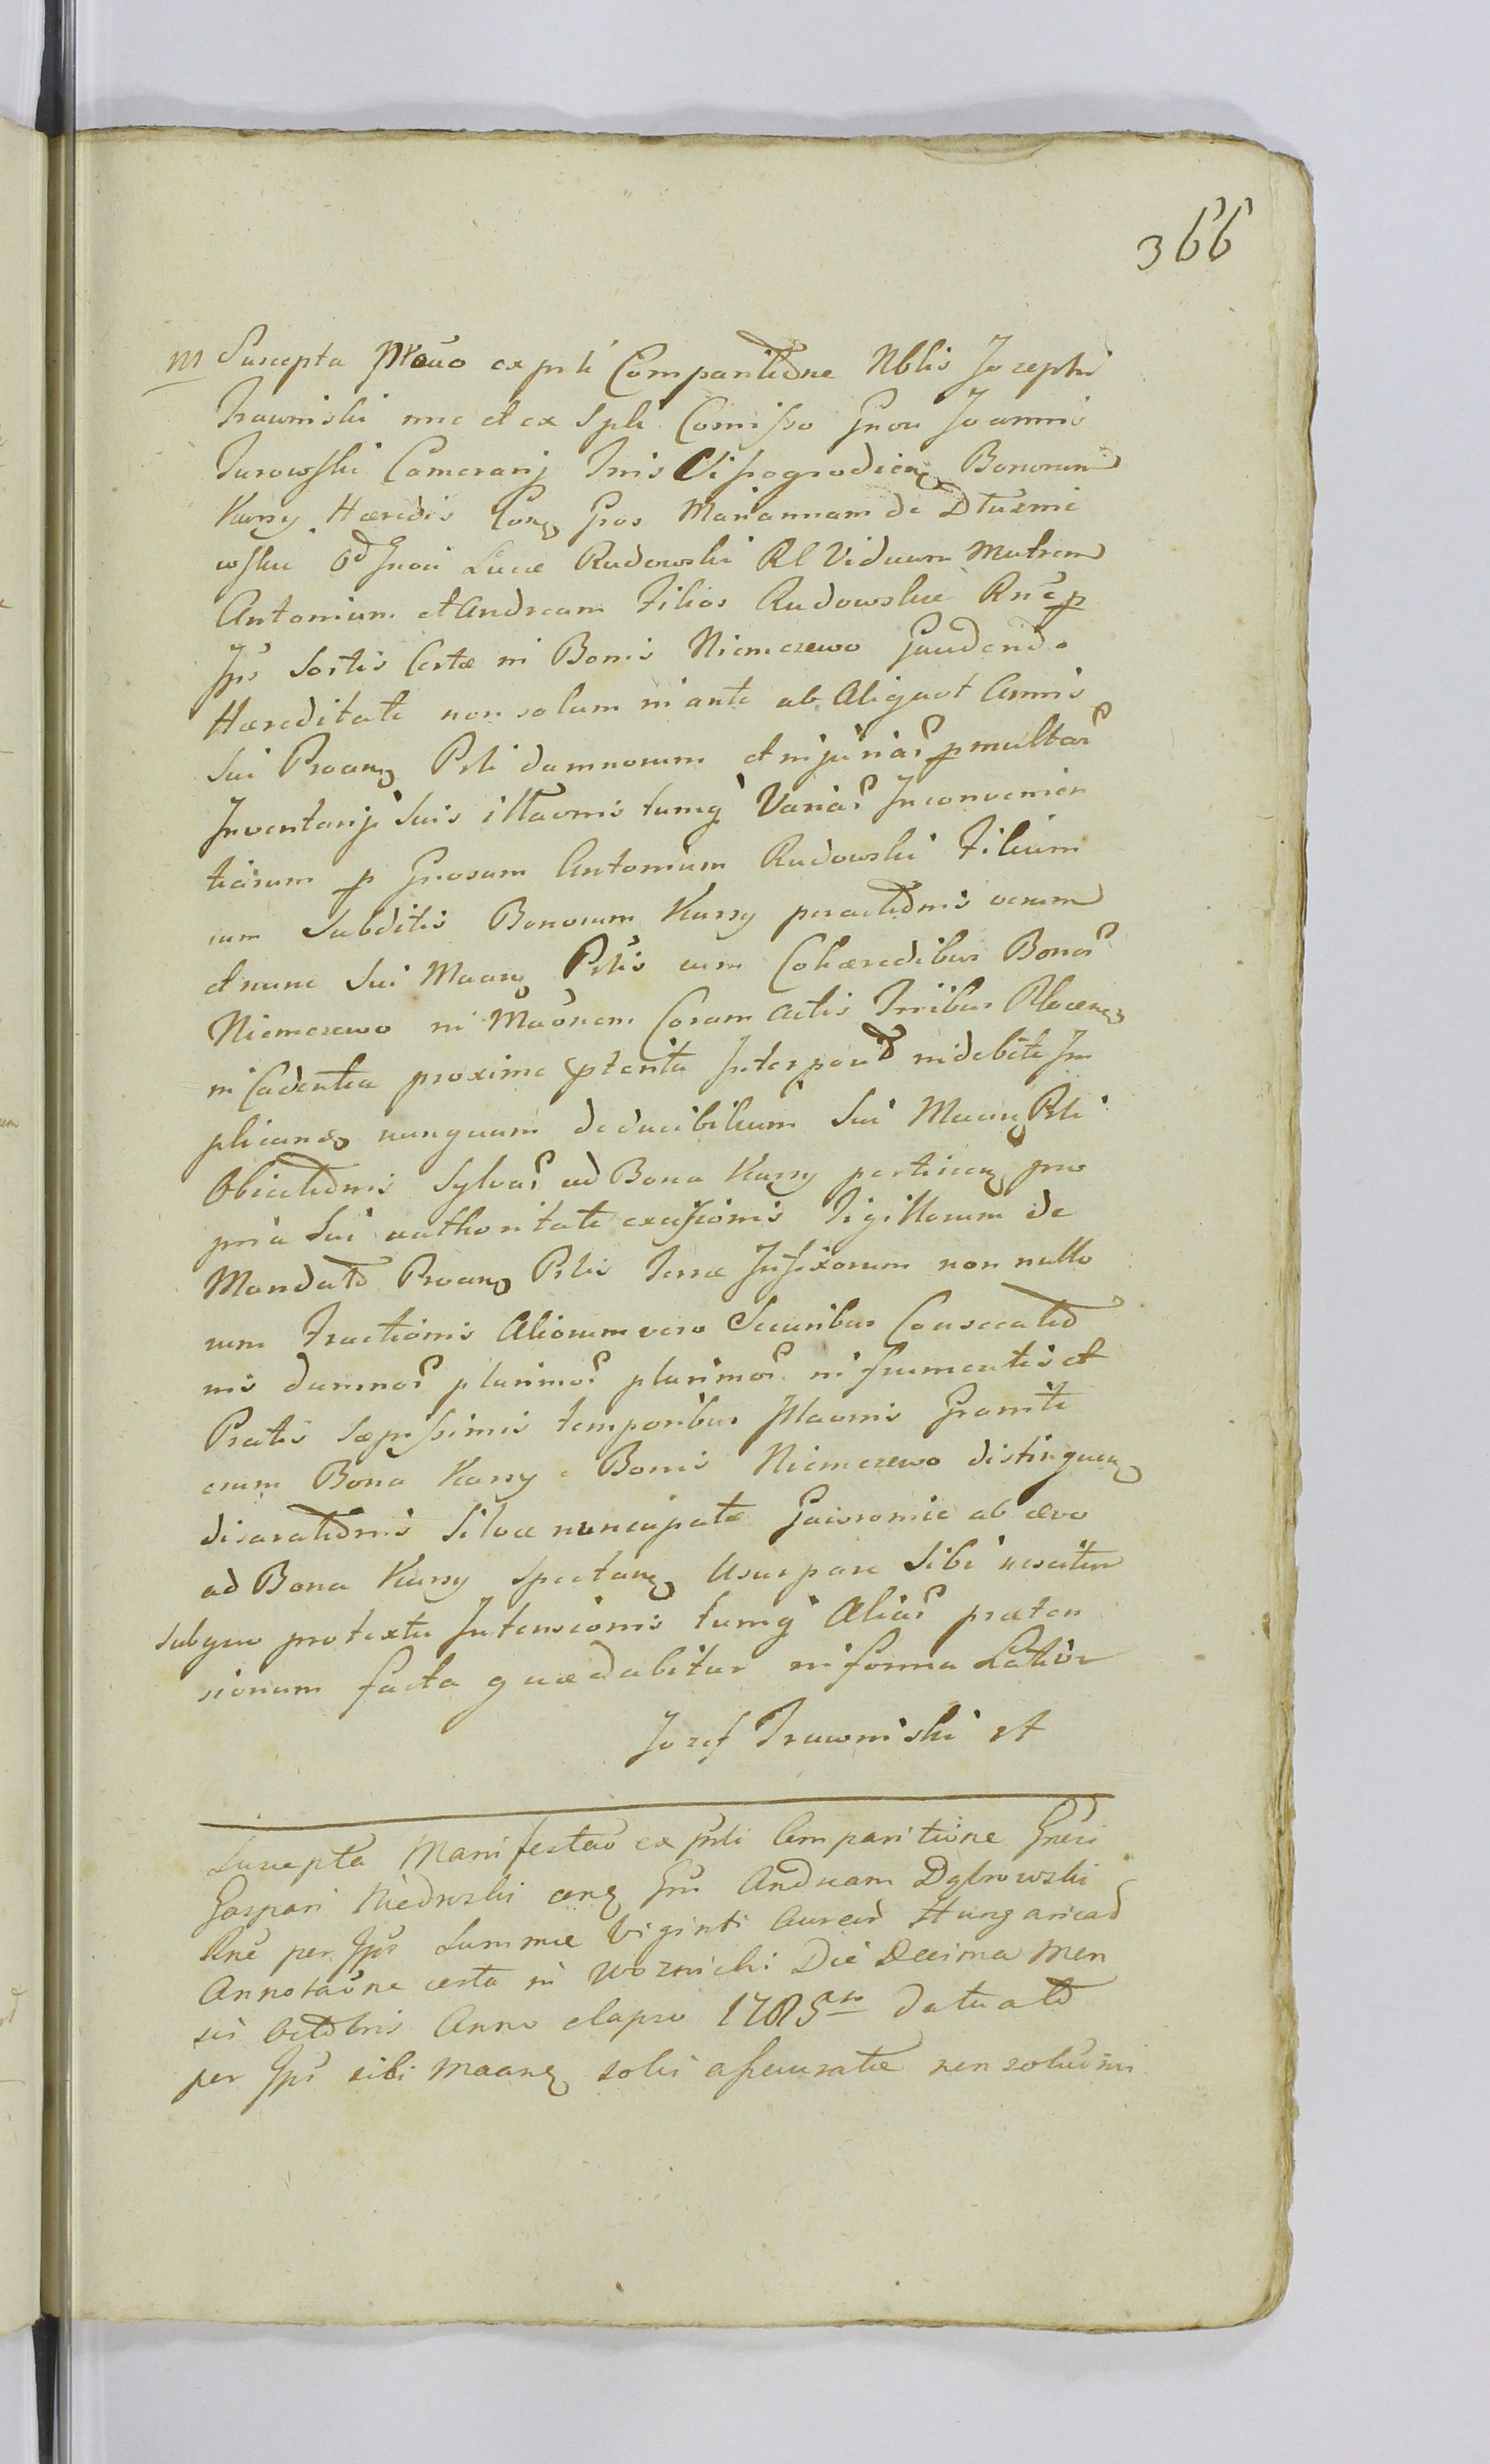 366
M Suscepta Mtaõo ex prti Comparitione Nblis Josephi
Trawinski nnc et ex Spli Comisso Gnou Joannis
Jurowski Camerarij Trris Vissogrodien Bonorum
Kursy Hæredis Con Gros Mariannam de Dłuznie
wskie Gnoi Lucæ Rudowski Rl Viduam Matrem
Antonium et Andream Filios Rudowskie Rnẽ p
Jps Sortis Certæ in Bonis Niemczewo Gaudend
Hæreditate non solum in ante ab Aliquot Annis
Sui Proan Prli damnorum et injuriar p multar
Inventarij Suis illaõnis tumq Variar Inconvenien
tiarum p Gnosum Antonium Rudowski Filium
cum Subditis Bonorum Kursy peractionis verum
et nunc Sui Maan Prlis cum Cohæredibus Bonor
Niemczewo in Maõnem Coram Actis Trribus Plocen
in Cadentia proxime pterita Interpou indebite Im
plican nunquam deducibilium Sui Maan Prli
Obiectionis Sylvar ad Bona Kursy pertinen pro
pria Sui authoritate excissionis Tigillorum de
Mandato Proan Prlis Terræ Infixorum non nullo
rum Fractionis Aliorum vero Securibus Consecatio
nis damnor plurimor plurimor in frumentis et
Pratis Sæpissimis temporibus Illaõnis Granite
erum Bona Kursy e Bonis Niemczewo distinguen
disaratidnis Silvæ nuncupatæ Gaioromie ab ævo
ad Bona Kursy Spectan Usurpare Sibi nescitur
Sub quo protextu Intensionis tumq Aliar præten
sionum facta quæ dabitur in forma Latior
Jozef Trawinski et
Suscepta Manifestaõ ex prli Comparitione Gnesi
Gaspari Niedrski con Gm Andream Dąbrowski
Rnẽ per Jps Summæ Viginti Aureor Hungarica
Annotaõne certa in Woznicki Die Decima Men
sis Octobris Anno elapso 1785to datuato
per Jps sibi Maan solis assecuratæ non soluõnis